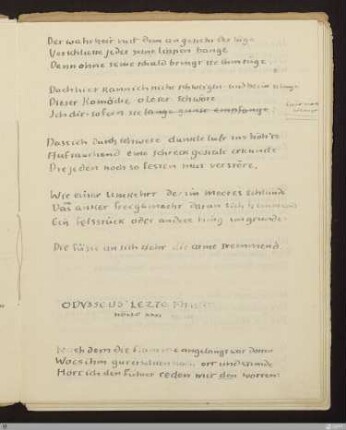 Der wahrheit mit dem angesicht der lüge
Verschliesse jeder seine lippen bange
Denn ohne seine schuld bringt sie ihm rüge
Doch hier kann ich nicht schweigen · und beim
Dieser Komödie o leser schwöre
Ich dir · sofern sie lange gunst empfange
Dass ich durch schwere dunkle luft
Auftauchend eine schreckgestalt erkunde
Die jeden noch so festen mut verstöre.
Wie einer umkehrt der in meeres schlunde
Den anker freigemacht daran sich
Ein felsstück oder andres ding im grunde·
Die füsse an sich zieht die arme
ODYSSEUS' LEZTE
HÖLLE XXVI
Nachdem die flamme angelangt war dorten
Wo es ihm gut schien nach ort und stunde
Hört ich den führer reden mit den worten: